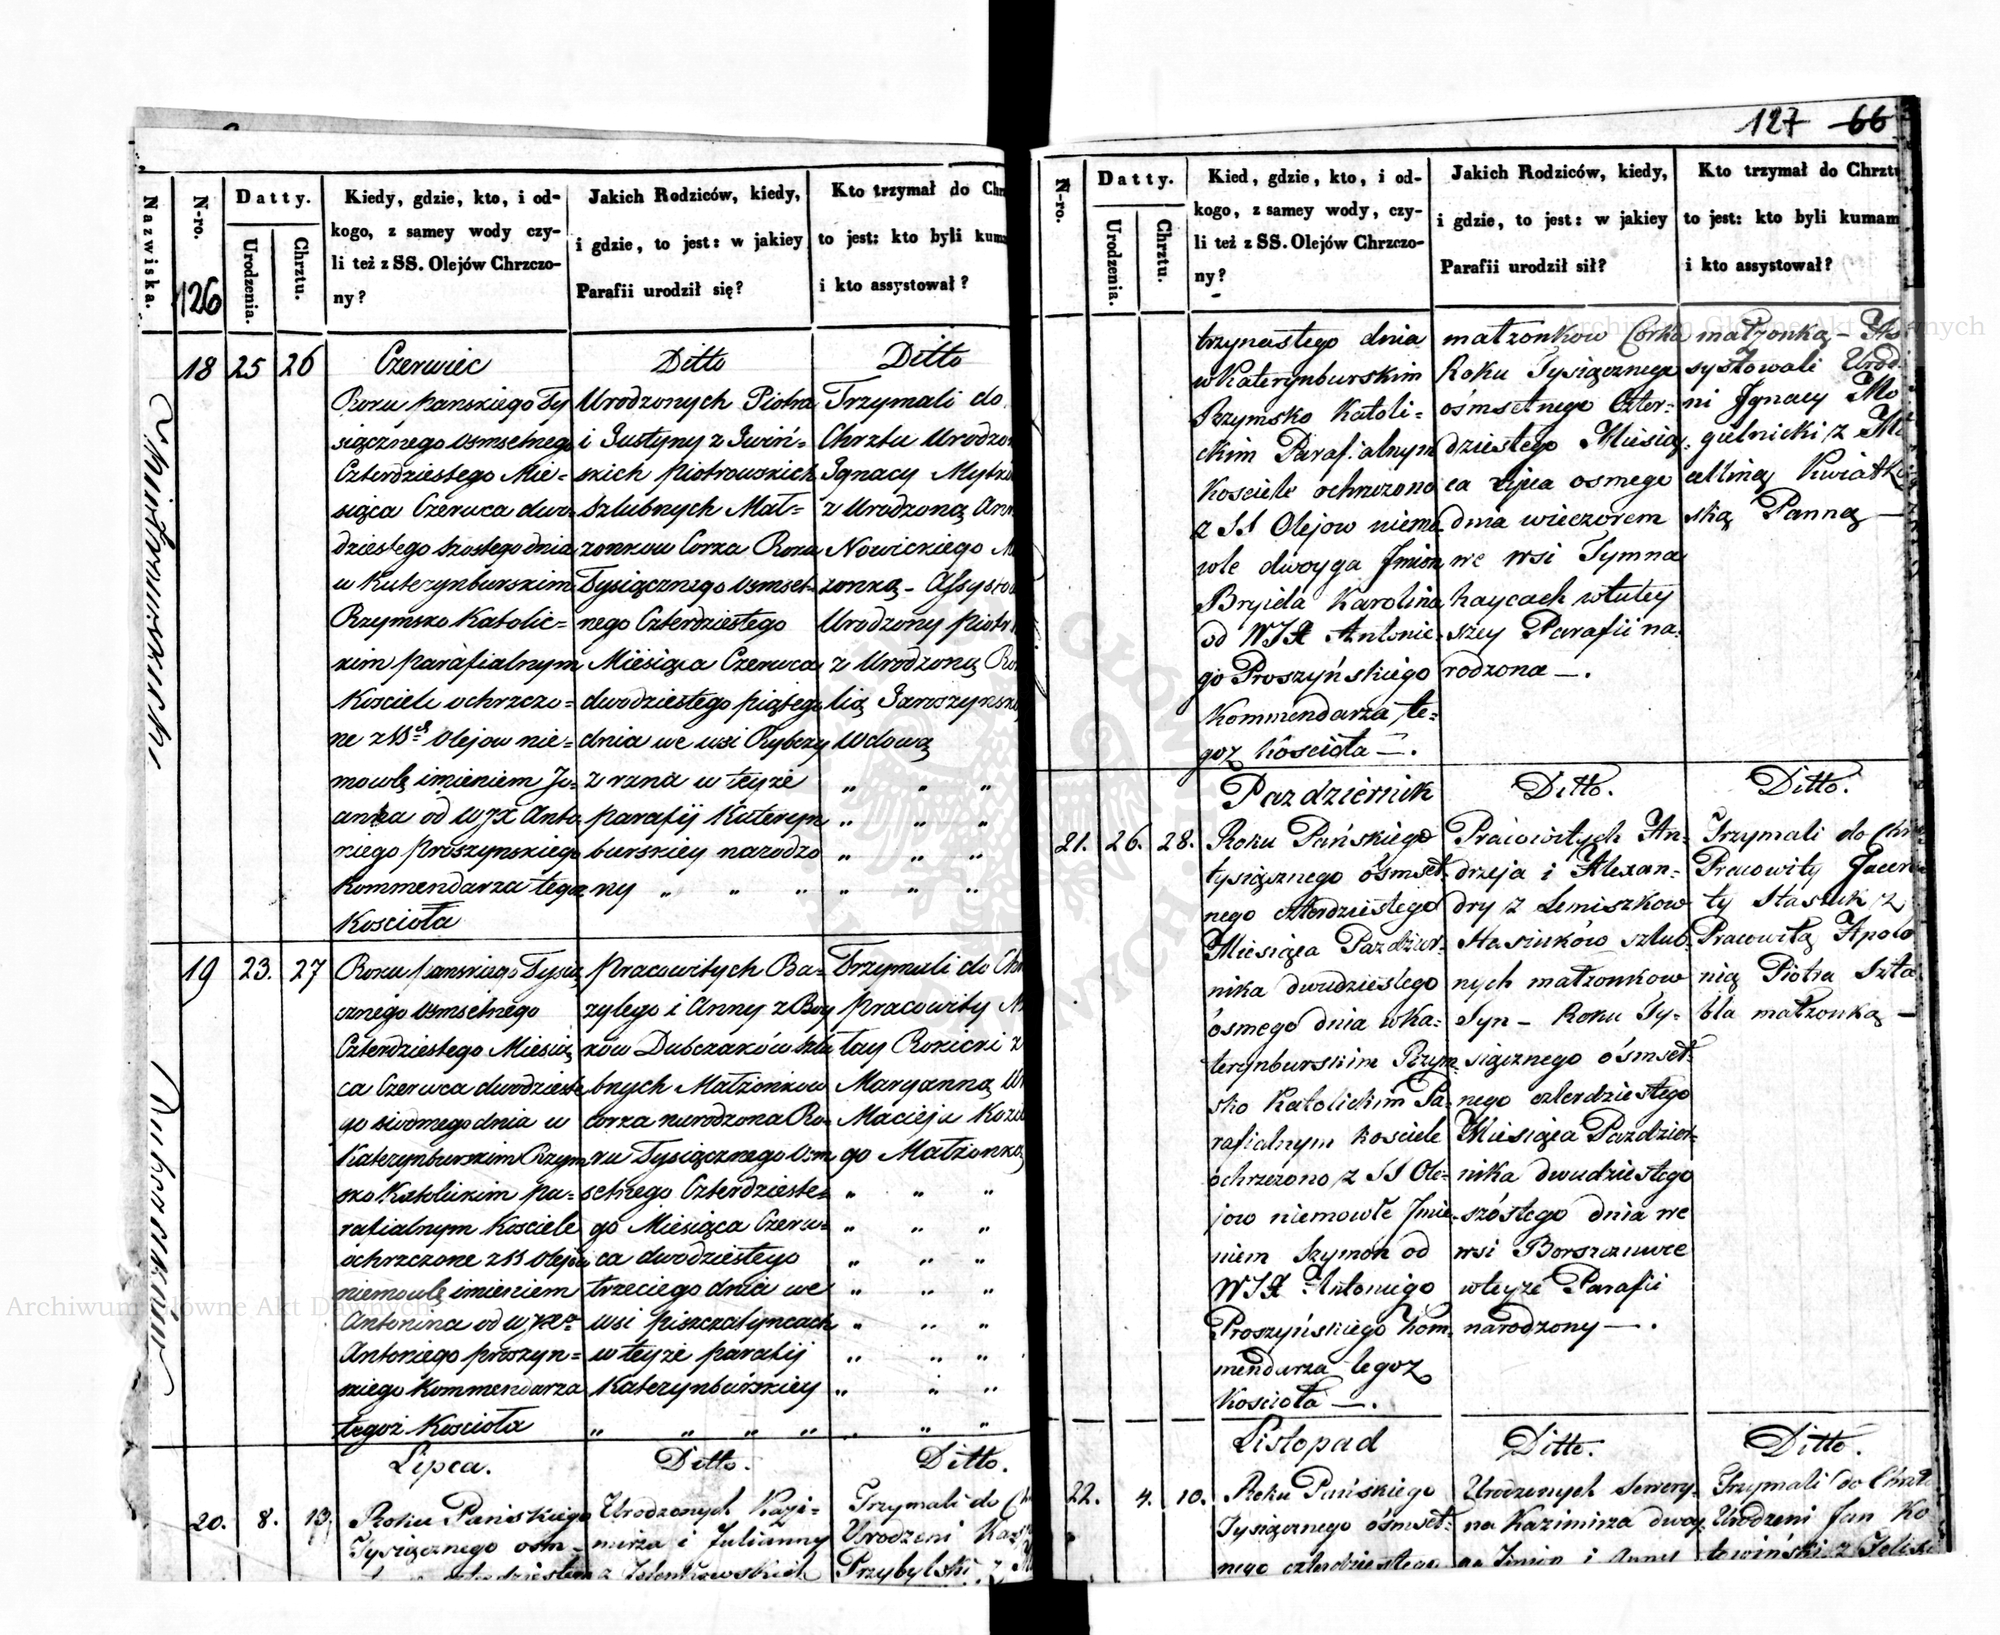 127 66
Nazwiska.
N-ro.
126
Datty.
Urodzenia.
Chrztu.
Kiedy, gdzie, kto, i od-
kogo, z samey wody czy-
li też z SS. Olejów Chrzczo-
ny?
Jakich Rodziców, kiedy,
i gdzie, to jest: w jakiey
Parafii urodził się?
Kto trzymał do
to jest: kto byli
i kto assystował?
18 25 26
Czerwiec
Roku pańskiego Ty
siącznego osmsetnego
Czterdziestego Mie-
siąca Czerwca dwu-
dziestego szóstego dnia
w Katerynburskim
Rzymsko Katolic-
kim parafialnym
Kosciele ochrzczo-
ne z SS Olejow nie-
mowlę imieniem Jo-
anna od WJX Anto-
niego Proszynskiego
Kommendarza tegoz
Kościoła
Ditto
Urodzonych Piotra
i Justyny z
skich Piotrowskich
Szlubnych Mał-
zonkow Corka Roku
Tysiącznego osmset-
nego Czterdziestego
Miesiąca Czerwca
dwudziestego piątego
dnia we wsi Rybczy
z rana w teyże
parafij Kateryn
burskiey narodzo
ny
Ditto
Trzymali do
Chrztu
Ignacy
z Urodzoną
Nowickiego
zonką - Assysto
Urodzony Piotr
z Urodzoną
lią Jaroszynską
Wdową
19 23. 27
Roku pańskiego Tysią
cznego osmsetnego
Czterdziestego Miesią
ca Czerwca dwudzieste
go siodmego dnia w
Katerynburskim Rzym
sko Katolickim pa-
rafialnym Kosciele
ochrzczone z SS Olejów
niemowlę imieniem
Antonina od WJX
Antoniego Proszyn-
skiego Kommendarza
tegoż Kościoła
pracowitych Ba-
zylego i Anny z
ków Dubczaków szlu
bnych Małżonkow
corka narodzona Ro-
ku Tysiącznego osm
setnego Czterdzieste-
go Miesiąca Czerw-
ca dwudziestego
trzeciego dnia we
wsi Piszczatyncach
w teyże parafij
Katerynburskiey
Trzymali do
pracowity
łay Rokicki z
Maryanną
Macieja
go Małżonką
Lipca.
20. 8. 13.
Roku Pańskiego
Tysiącznego osm-
Ditto.
Urodzonych Kazi-
mirza i Julianny
Ditto.
Trzymali do
Urodzeni
Przybylski z
N-ro.
Datty.
Urodzenia.
Chrztu.
Kied, gdzie, kto, i od-
kogo, z samey wody, czy-
li też z SS. Olejów Chrzczo-
ny?
Jakich Rodziców, kiedy,
i gdzie, to jest: w jakiey
Parafii urodził sił?
Kto trzymał do Chrztu
to jest: kto byli kumam
i kto assystował?
trzynastego dnia
w Katerynburskim
Rzymsko Katoli-
ckim Parafialnym
Kosciele ochrzczono
z SS Olejow niemo
wle dwoyga Jmion
Brygida Karolina
od WJX Antonie-
go Proszyńskiego
Kommendarza te-
goz Kościoła —.
małzonkow Corka
Roku Tysiącznego
ośmsetnego Czter-
dziestego Miesią-
ca Lipca osmego
dnia wieczorem
we wsi Tymna
haycach w tutey
szey Parafii na-
rodzona —.
małzonką —
systowali
ni Jgnacy Mo
gielnicki z
celliną Kwiatko
ską Panną —
Pazdziernik
21. 26. 28.
Roku Pańskiego
tysiącznego ośmset-
nego czterdziestego
Miesiąca Pazdzier-
nika dwudziestego
ósmego dnia w Ka-
terynburskim Rzym-
sko Katolickim Pa-
rafialnym Kosciele
ochrzczono z SS Ole-
jow niemowle Jmie-
niem Szymon od
WJX Antoniego
Proszyńskiego Kom-
mendarza tegoz
Kościoła —.
Ditto.
Pracowitych An-
drzeja i Alexan-
dry z Lemiszkow
Stasiuków szlub-
nych małzonkow
Syn - Roku Ty-
siącznego ośmset-
nego czterdziestego
Miesiąca Pazdzier-
nika dwudziestego
szóstego dnia we
wsi Borszczuwce
w teyże Parafii
narodzony —.
Ditto.
Trzymali do
Pracowity Jacen
ty Stasiuk z
Pracowitą Apolo
nią Piotra
bla małzonką —
Listopad
22. 4. 10.
Roku Pańskiego
Tysiącznego ośmset-
nego czterdziestego
Ditto.
Urodzonych Sewery-
na Kazimirza dwoy
ga Jmion i
Ditto.
Trzymali do Chrztu
Urodzeni Jan
Archiwum Główne Akt Dawnych
Archiwum Główne Akt Dawnych